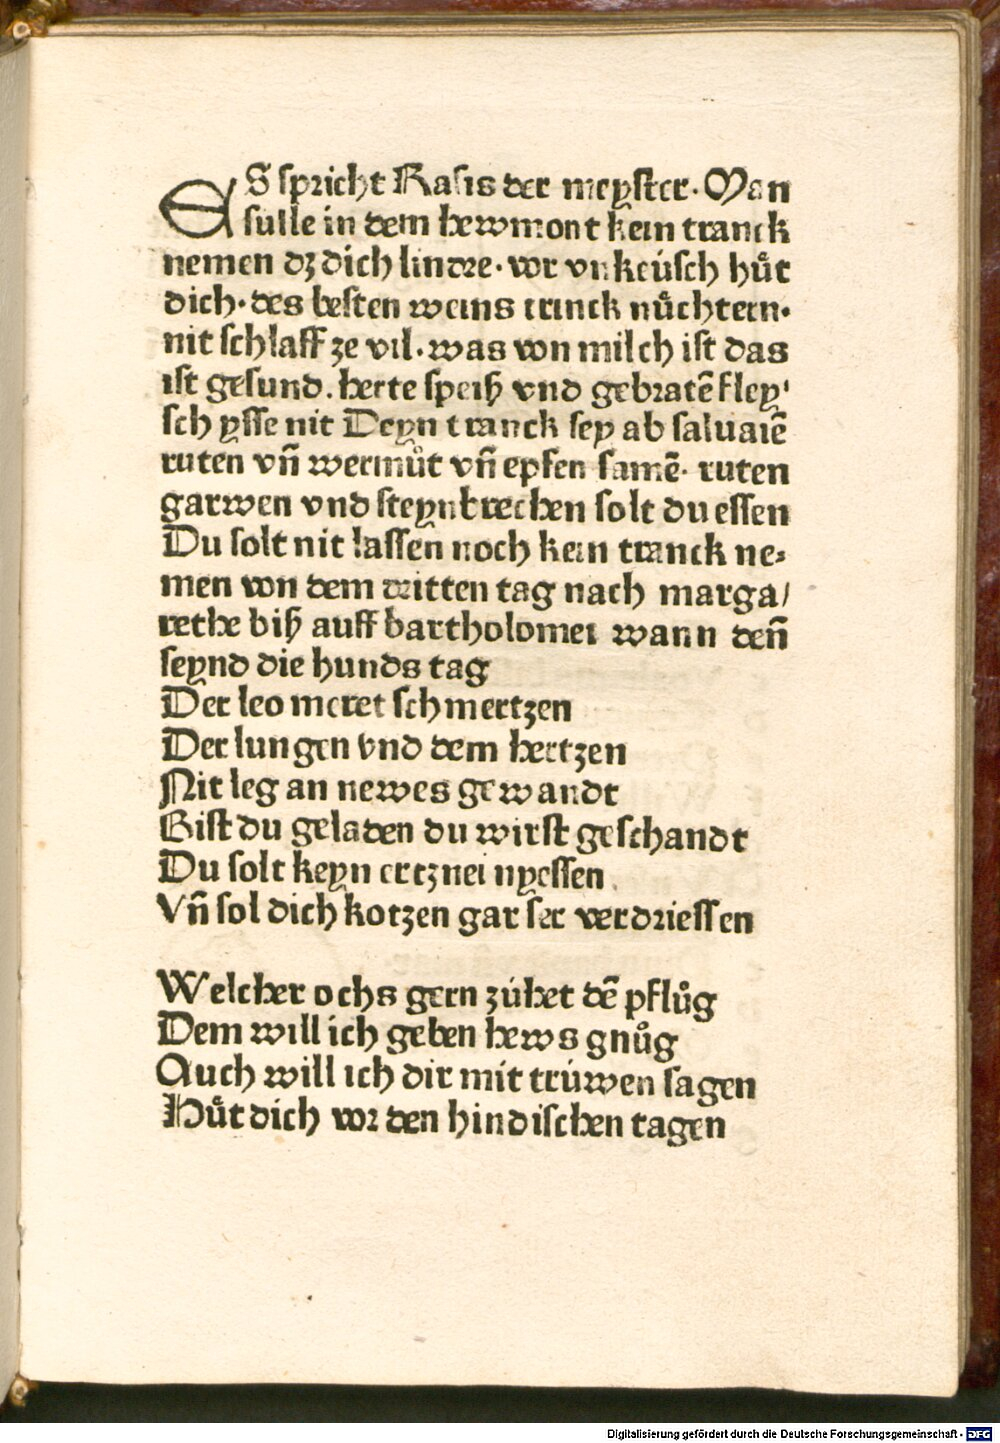 ES spricht Rasis der meyster. Man
sulle in dem hewmont kein tranck
nemen dz dich lindre. vor vnkeúsch huͤt
dich. des besten weins trinck nuͤchtern.
nit schlaff ze vil. was von milch ist das
ist gesund. herte speiß vnd gebratē fley'
sch ysse nit Deyn tranck sey ab saluaiē
ruten vn̄ wermuͦt vn̄ epfen samē. ruten
garwen vnd steynbrechen solt du essen
Du solt nit lassen noch kein tranck ne⸗
men von dem dritten tag nach marga/
rethe biß auff bartholomei wann den̄
seynd die hunds tag
Der leo meret schmertzen
Der lungen vnd dem hertzen
Nit leg an newes gewandt
Bist du geladen du wirst geschandt
Du solt keyn ertznei nyessen
Vn̄ sol dich kotzen gar ser verdriessen

Welcher ochs gern zúhet dē pfluͦg
Dem will ich geben hews gnuͦg
Auch will ich dir mit trúwen sagen
Huͤt dich vor den hindischen tagen
Digitalisierung gefördert durch die Deutsche Forschungsgemeinschaft - DFG